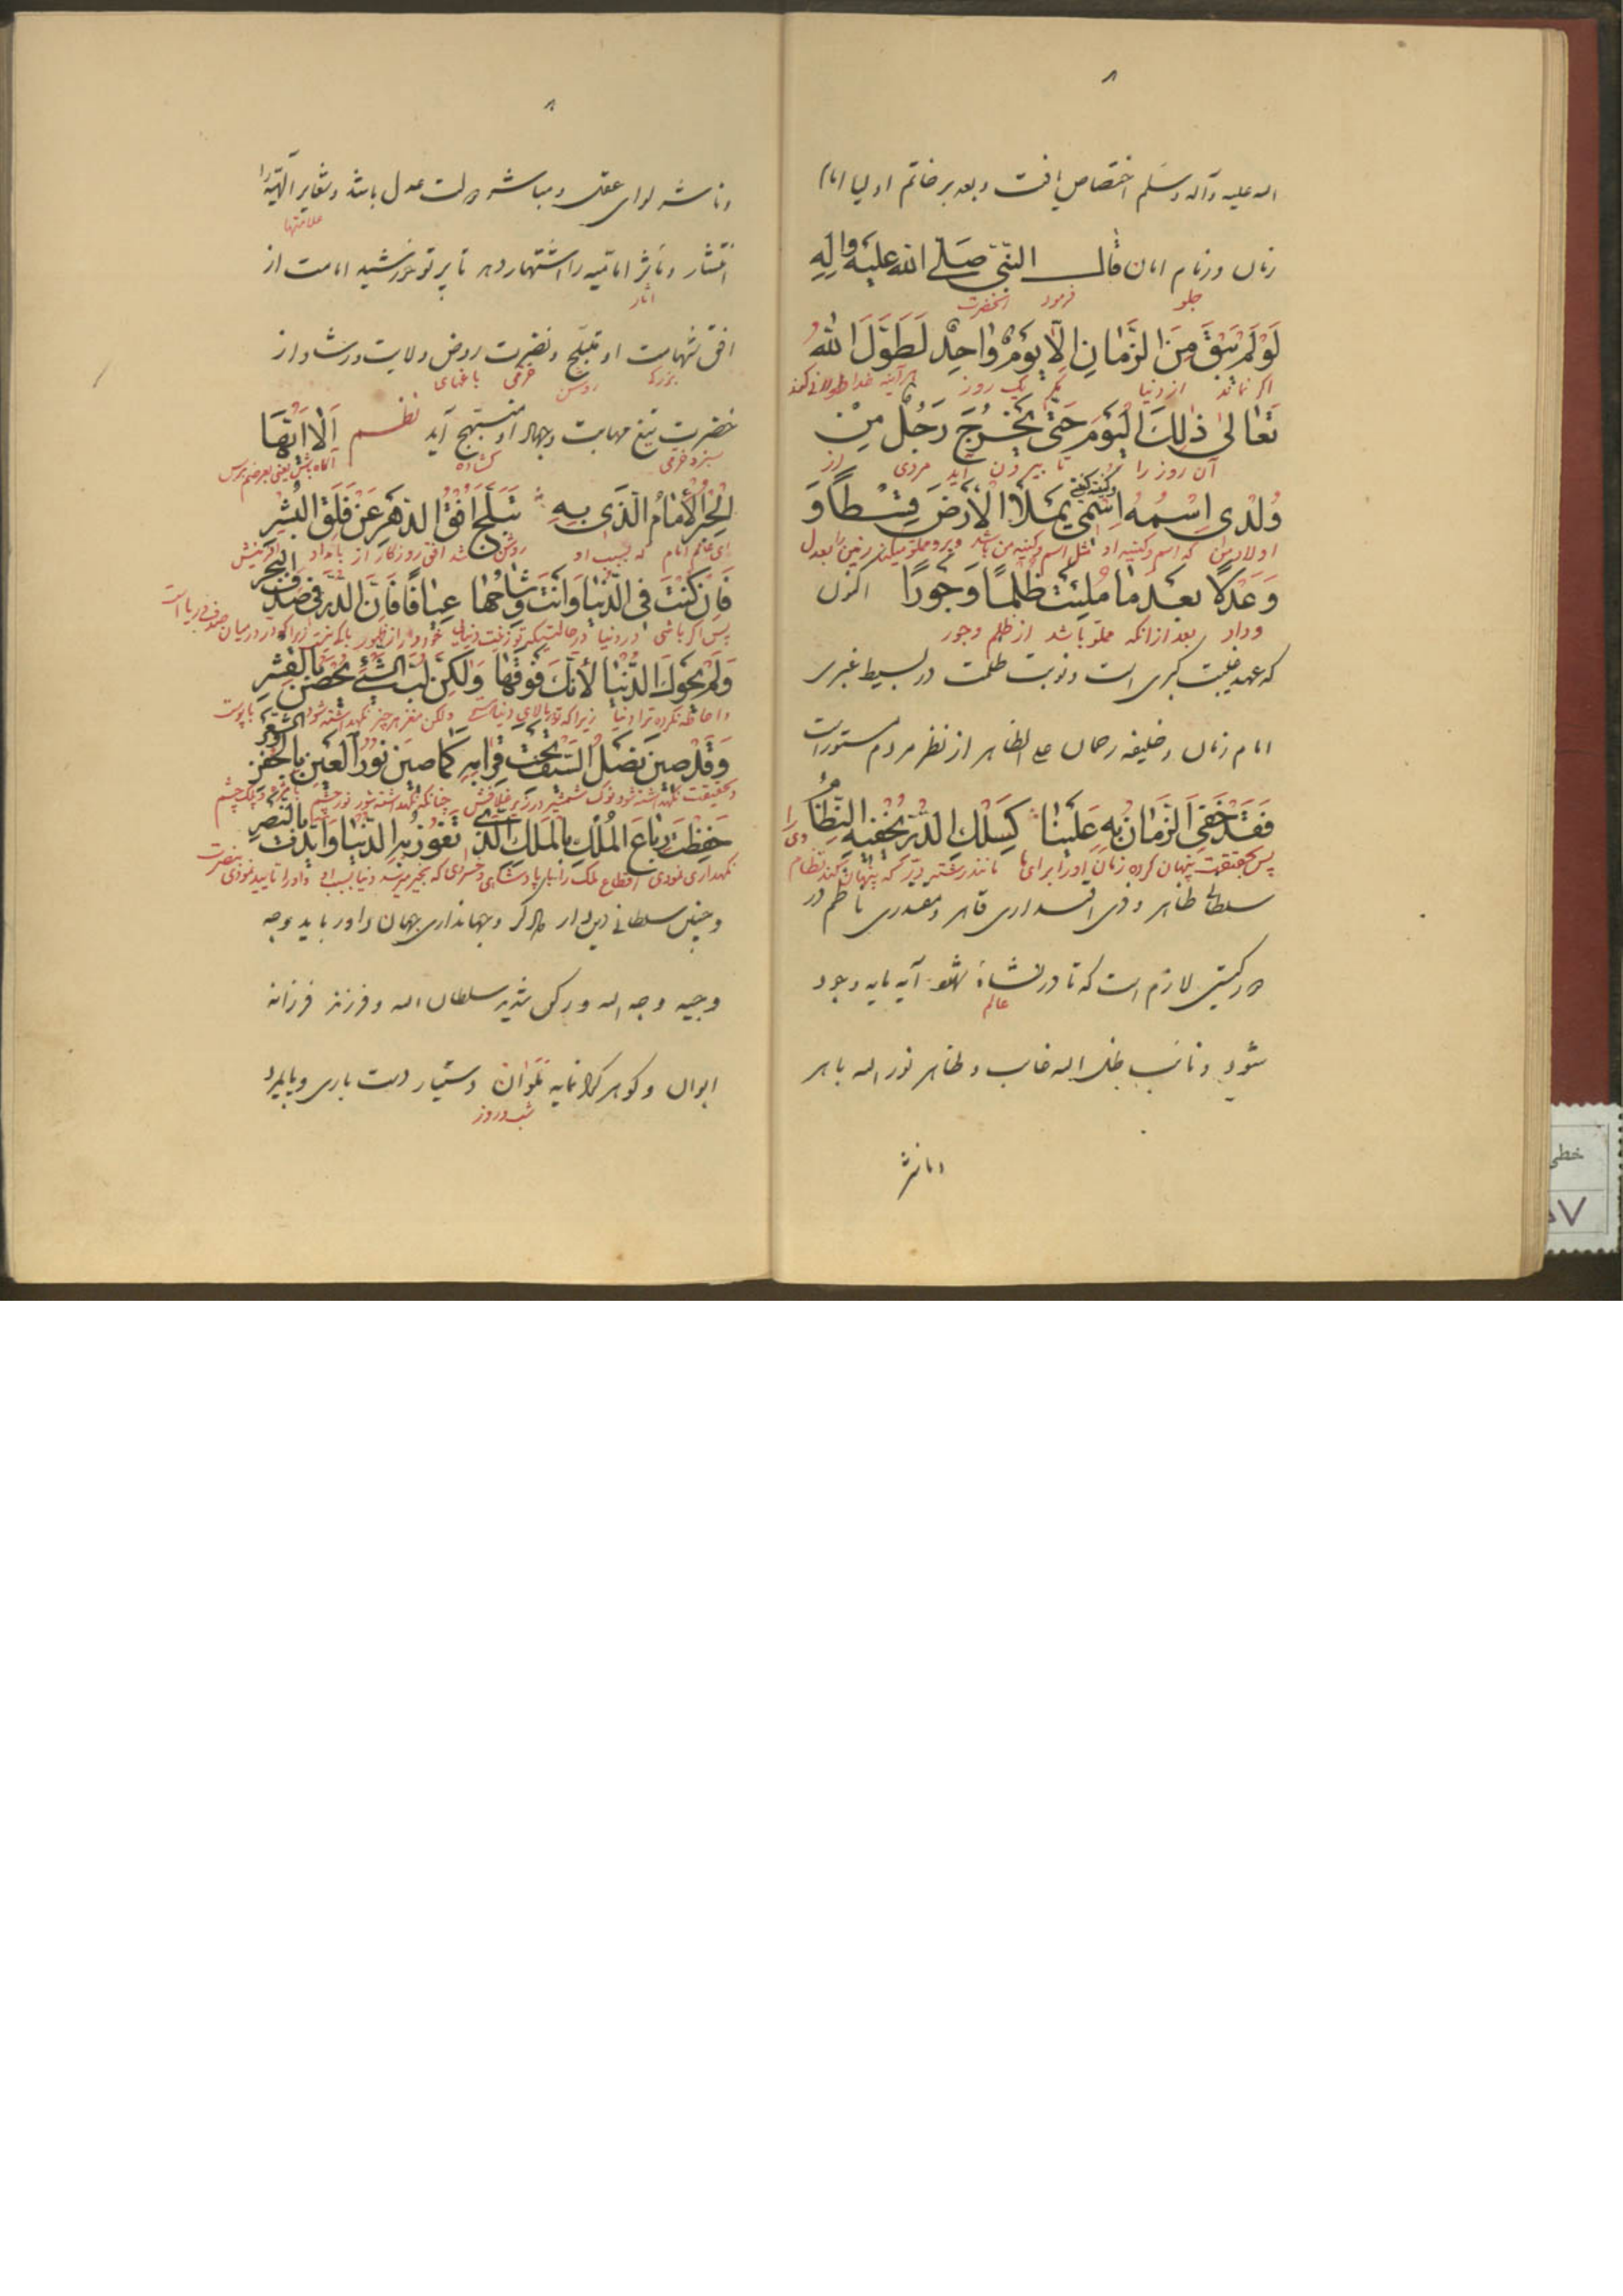 ۸
اله علیه وآله وسلم اختصاص یافت وبعد بر خاتم اولیا امام
زمان وزمام امان قال النبی صلی الله علیه واله
جلو فرمود آنحضرت
لَوْ لَمْ یَبْقَ مِنَ الزَّمانِ اِلّا یَوْمٌ واحِدٌ لَطَوَّلَ اللهُ
اکر نماند از دنیا مکر یک روز هر آینه خدا طولانی کند
تَعالیٰ ذٰلِكَ الْیَوْمَ حَتّیٰ یَخْرُجَ رَجُلٌ مِنْ
آن روز را تا بیرون آید مردی از
وُلْدی اِسْمُهُ اِسْمی وکنیته کنیتی یَمْلَأُ الْأَرْضَ قِسْطاً وَ
اولاد من که اسم وکنیه او مثل اسم وکنیه من باشد وپر ومملو میکند زمین را بعدل
وَعَدْلًا بَعْدَ ما مُلِئَتْ ظُلْماً وَجَوْرًا اکنون
وداد بعد از انکه مملو باشد از ظلم وجور
که عهد غیبت کبری است ونوبت ظلمت در بسیط غبری
امام زمان وخلیفه رحمان علی الظاهر از نظر مردم مستور است
فَقَدْ خَفِیَ الزَّمانُ بِهِ عَلَیْنا کَسِلْكِ الدُّرِّ یُخْفیهِ النِّظامُ
پس بحقیقت پنهان کرده زمان اورا برای ما مانند رشته در که پنهان کند نظام
سلطانی ظاهر وذی اقتداری قاهر ومعدری ناظم در
در کیتی لازم است که تا در نشاهٔ شهود آیه پایه وجود
عالم
شود ونائب ظل اله غایب وظاهر نور اله باهر
وناشر
۸
وناشر لوای عقل ومباشر دولت عدل باشد وشعایر الهیه را
علامتها
انتشار ومآثر امامیه را اشتهار دهد تا پرتو خورشید امامت از
آثار
افق شهامت او متبلج ونضرت روض ولایت ورشاد از
بزرک روشن خرمی باغهای
خضرت تیغ مهابت وجهاد او مبتهج آید نظم اَلا اَیُّهَا
سبز وخرمی کشاده آکاه باش
الْحِبْرُ الْأِمامُ الَّذی بِهِ تَبَلَّجَ اُفْقُ الدَّهْرِ عَنْ فَلَقِ الْبُشْرِ
ای عالم امام که بسبب او روشن شد افق روزکار از بامداد
فَاِنْ کُنْتَ فِی الدُّنْیا وَاَنْتَ وِشاحُها عِیافًا فَاِنَّ الدُّرَّ فی صَدَفِ الْبَحْرِ
پس اکر باشی در دنیا در حالتیکه تو زینت دنیایی
وَلَمْ یَحْوِكَ الدُّنْیا لِأَنَّكَ فَوْقَها وَلٰکِنْ لُبُّ الشَّیْءِ یُحْصَنُ بِالْقِشْرِ
واحاطه نکرده ترا دنیا زیرا که تو بالای دنیا ولکن مغز هر چیز نکهداشته شود با پوست
وَقَدْ صینَ نَصْلُ السَّیْفِ تَحْتَ قِرابِهِ کَما صینَ نُورُ الْعَیْنِ بِالْجَفْنِ
وبحقیقت نکهداشته شود نوک شمشیر در زیر غلافش چنانکه نکهداشته شود نور چشم
حَفِظْتَ رِباعَ الْمُلْكِ بِالْمَلِكِ الَّذی تَفُوزُ بِهِ الدُّنْیا وَاَیَّدْتَ بِالنَّصْرِ
نکهداری نمودی اقطاع ملک را
وچنین سلطانی دین دار ودادکر وجهانداری جهان داور باید وجه
وجیه وجه اله ورکن شدید سلطان اله وفرزند فرزانه
ابوان وکوهر کرانمایه ملوان دستیار دست باری وپایمرد
شب وروز
خطی